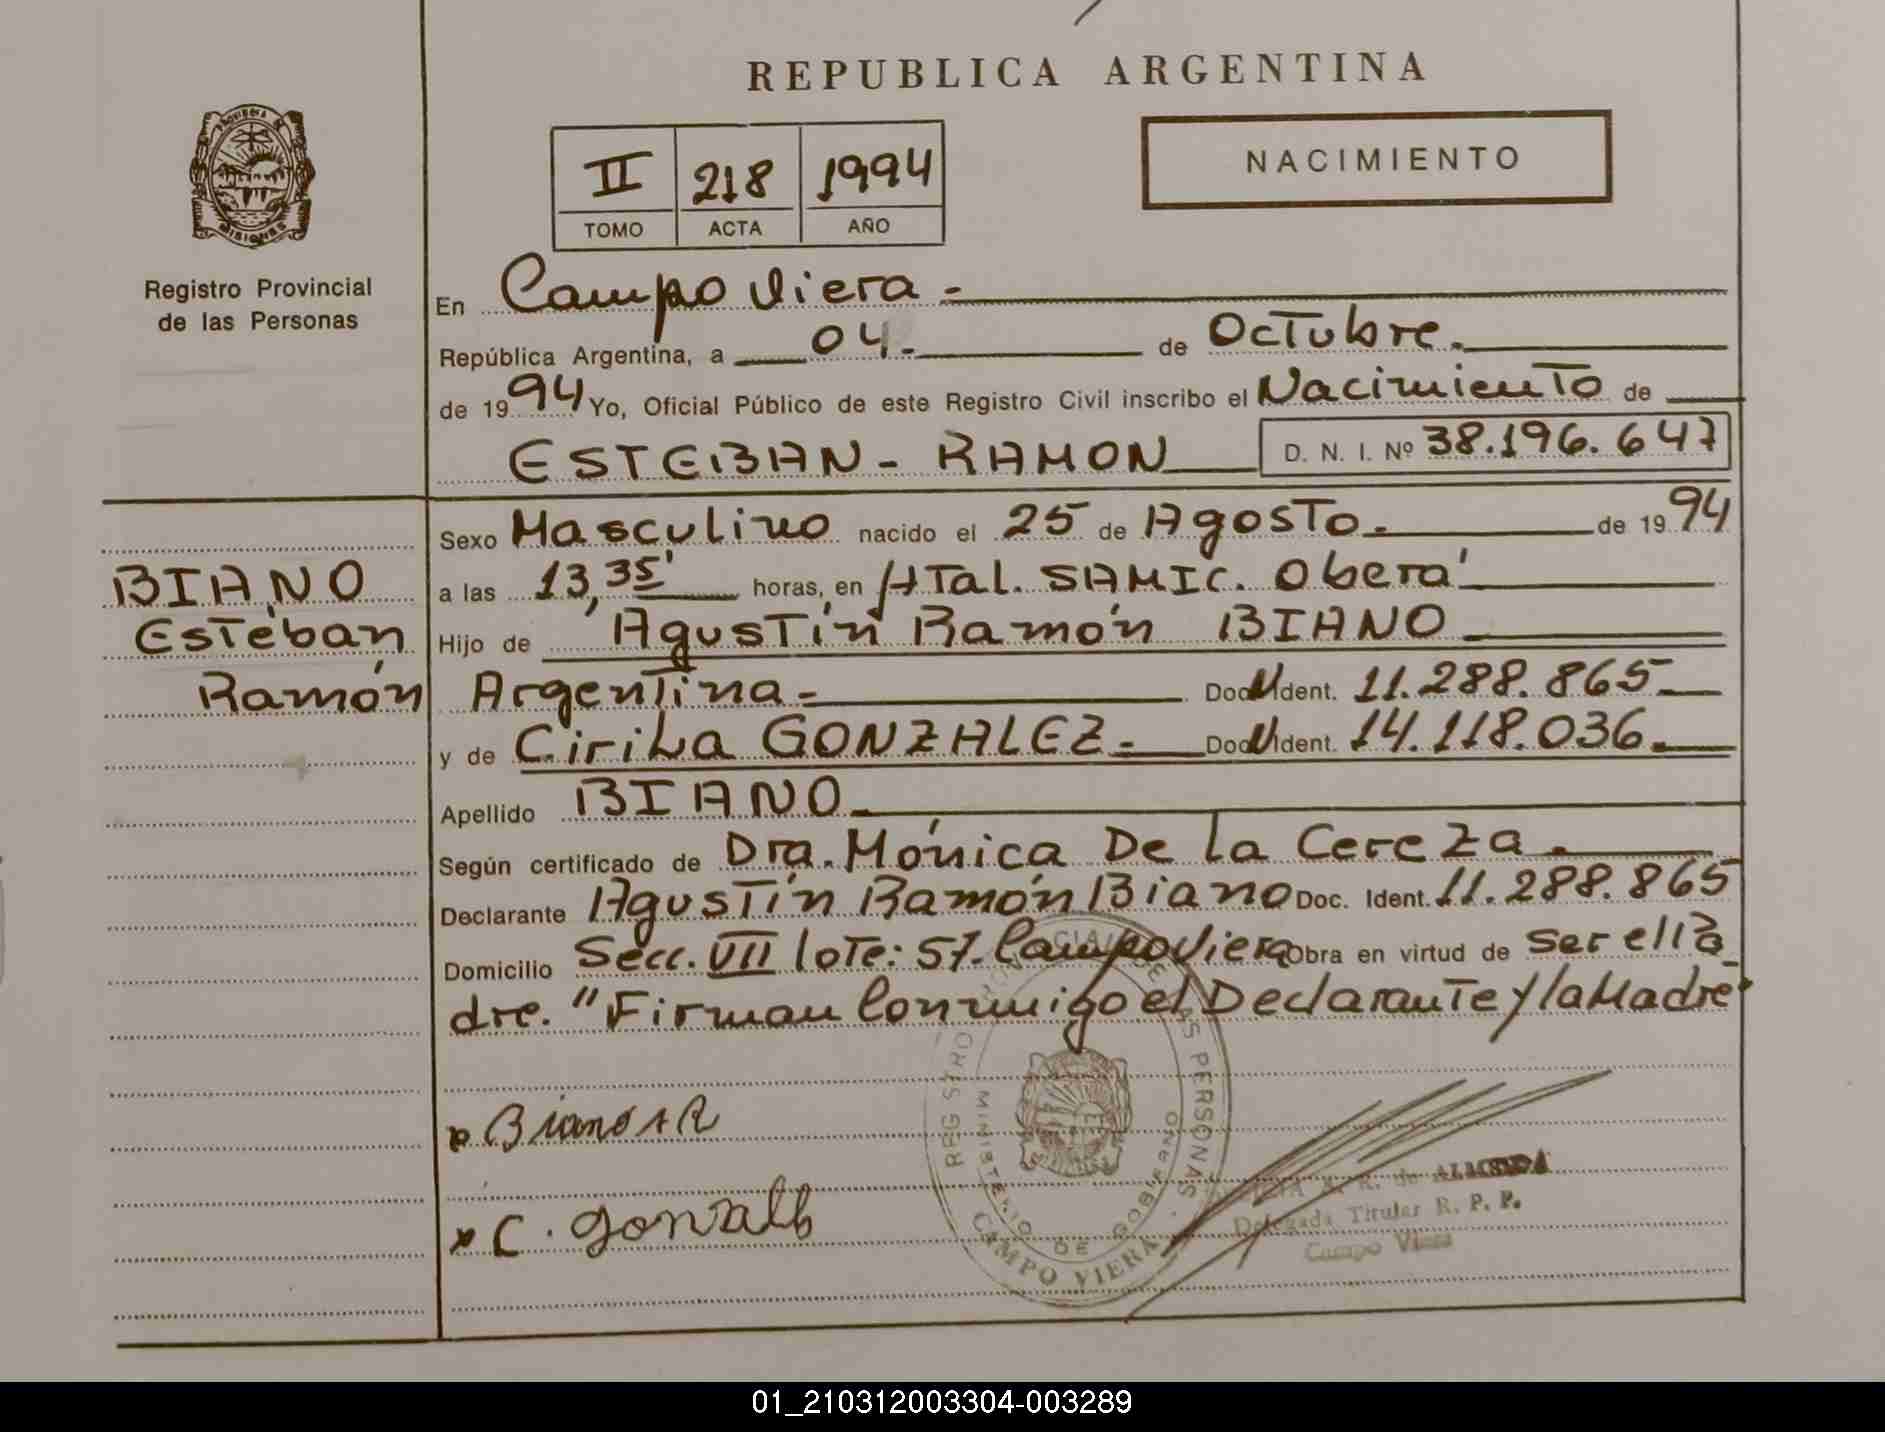 REPUBLICA ARGENTINA
PROVINCIA DE
MISIONES
II 218 1994
TOMO ACTA AÑO
NACIMIENTO
Registro Provincial
de las Personas
En Campo Viera -
República Argentina, a 04. de Octubre.
de 1994 Yo, Oficial Público de este Registro Civil inscribo el Nacimiento de
ESTEBAN - RAMON D. N. I. Nº 38.196.647
Sexo Masculino nacido el 25 de Agosto. de 1994
BIANO
Estéban
Ramón
a las 13,35' horas, en HTal. SAMIC. Oberá
Hijo de Agustín Ramón BIANO
Argentina - Doc. Ident. 11.288.865
y de Cirila GONZALEZ - Doc. Ident. 14.118.036.
Apellido BIANO
Según certificado de Dra. Mónica De la Cereza.
Declarante Agustín Ramón Biano Doc. Ident. 11.288.865
Domicilio Secc. VII lote: 57. Campo Viera Obra en virtud de ser el Pa
dre. "Firman Conmigo el Declarante y la Madre"
Biano A R
C. Gonzalb
REGISTRO PROVINCIAL DE LAS PERSONAS
MINISTERIO DE GOBIERNO
CAMPO VIERA
A. R. de
Delegada Titular R. P. P.
Campo Viera
01_210312003304-003289